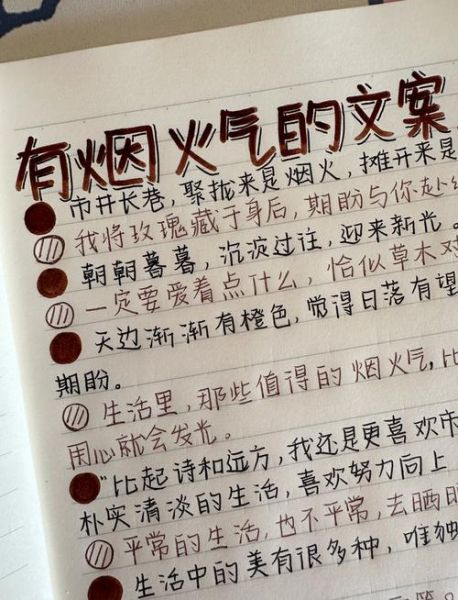 有烟火气的文案
市井长巷，聚拢来是烟火，摊开来是
我将玫瑰藏于身后，期盼与你赴
朝朝暮暮，沉淀过往，迎来新光。
一定要爱着点什么，恰似草木对
天边渐渐有橙色，觉得日落有望
期盼。
生活里，那些值得的烟火气，比
用心就会发光。
"比起诗和远方，我还是更喜欢市
朴实清淡的生活，喜欢努力向上
平常的生活，也不平常，去晒晒
生活中的美有很多种，唯独